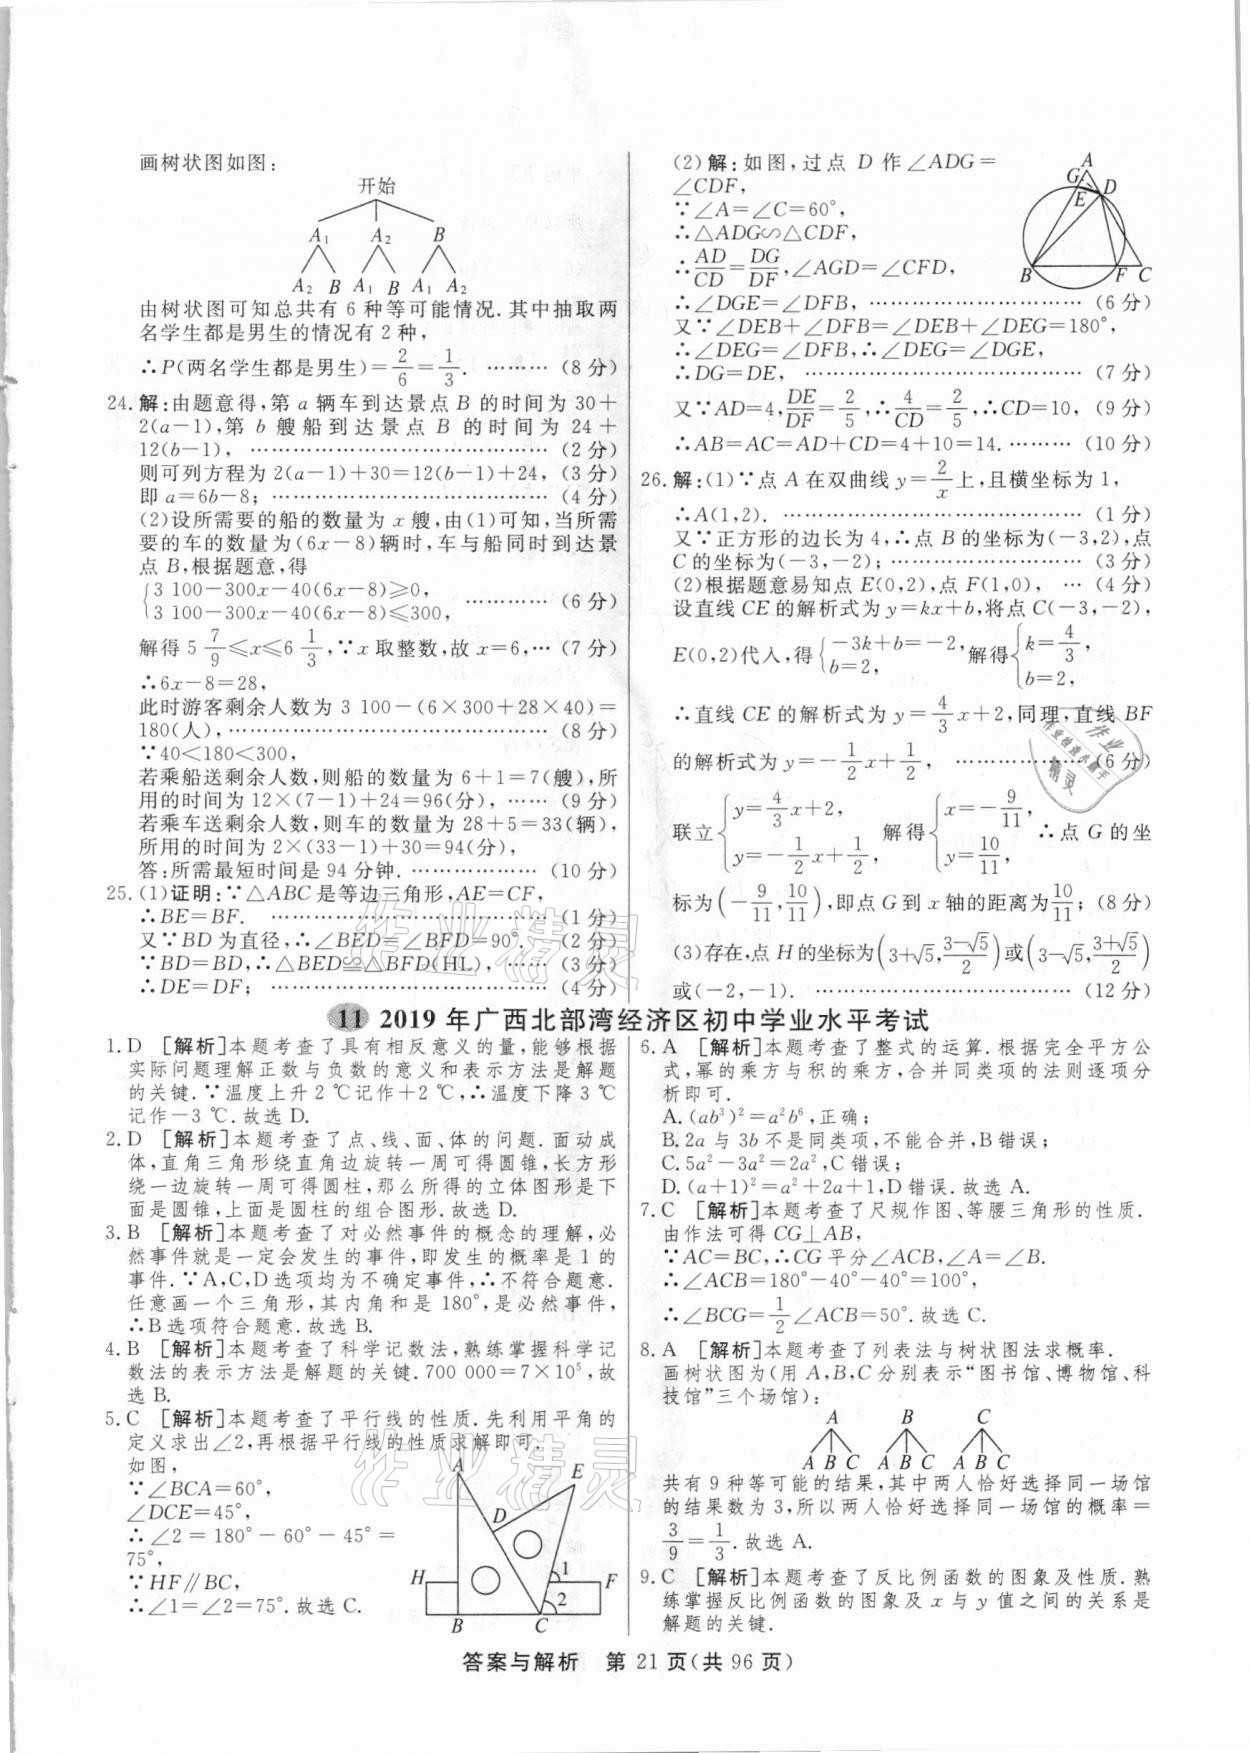 画树状图如图:
开始
A₁ A₂ B
A₂ B A₁ B A₁ A₂
由树状图可知总共有 6 种等可能情况.其中抽取两
名学生都是男生的情况有 2 种,
∴P(两名学生都是男生)=2/6=1/3. ……… (8 分)
24.解:由题意得,第 a 辆车到达景点 B 的时间为 30+
2(a-1),第 b 艘船到达景点 B 的时间为 24+
12(b-1), ………………………………… (2 分)
则可列方程为 2(a-1)+30=12(b-1)+24, (3 分)
即 a=6b-8; ……………………………… (4 分)
(2)设所需要的船的数量为 x 艘,由(1)可知,当所需
要的车的数量为(6x-8)辆时,车与船同时到达景
点 B,根据题意,得
{3 100-300x-40(6x-8)≥0,
3 100-300x-40(6x-8)≤300, ………… (6 分)
解得 5 7/9≤x≤6 1/3,∵x 取整数,故 x=6,… (7 分)
∴6x-8=28,
此时游客剩余人数为 3 100-(6×300+28×40)=
180(人), ………………………………… (8 分)
∵40<180<300,
若乘船送剩余人数,则船的数量为 6+1=7(艘),所
用的时间为 12×(7-1)+24=96(分), …… (9 分)
若乘车送剩余人数,则车的数量为 28+5=33(辆),
所用的时间为 2×(33-1)+30=94(分),
答:所需最短时间是 94 分钟. ……………… (10 分)
25.(1)证明:∵△ABC 是等边三角形,AE=CF,
∴BE=BF. ……………………………… (1 分)
又∵BD 为直径,∴∠BED=∠BFD=90°. (2 分)
∵BD=BD,∴△BED≌△BFD(HL), …… (3 分)
∴DE=DF; ……………………………… (4 分)
(2)解:如图,过点 D 作∠ADG=
∠CDF,
∵∠A=∠C=60°,
∴△ADG∽△CDF,
∴AD/CD=DG/DF,∠AGD=∠CFD,
A
G D
E
B F C
∴∠DGE=∠DFB, ………………………… (6 分)
又∵∠DEB+∠DFB=∠DEB+∠DEG=180°,
∴∠DEG=∠DFB,∴∠DEG=∠DGE,
∴DG=DE, ………………………………… (7 分)
又∵AD=4,DE/DF=2/5,∴4/CD=2/5,∴CD=10, (9 分)
∴AB=AC=AD+CD=4+10=14. ……… (10 分)
26.解:(1)∵点 A 在双曲线 y=2/x上,且横坐标为 1,
∴A(1,2). …………………………………… (1 分)
又∵正方形的边长为 4,∴点 B 的坐标为(-3,2),点
C 的坐标为(-3,-2); ……………………… (3 分)
(2)根据题意易知点 E(0,2),点 F(1,0), … (4 分)
设直线 CE 的解析式为 y=kx+b,将点 C(-3,-2),
E(0,2)代入,得{-3k+b=-2, b=2, 解得{k=4/3, b=2,
∴直线 CE 的解析式为 y=4/3x+2,同理,直线 BF
的解析式为 y=-1/2x+1/2, ……………… (6 分)
联立{y=4/3x+2, y=-1/2x+1/2, 解得{x=-9/11, y=10/11, ∴点 G 的坐
标为(-9/11,10/11),即点 G 到 x 轴的距离为10/11; (8 分)
(3)存在,点 H 的坐标为(3+√5,(3-√5)/2)或(3-√5,(3+√5)/2)
或(-2,-1). ……………………………… (12 分)
11 2019 年广西北部湾经济区初中学业水平考试
1.D [解析]本题考查了具有相反意义的量,能够根据
实际问题理解正数与负数的意义和表示方法是解题
的关键.∵温度上升 2 ℃记作+2 ℃,∴温度下降 3 ℃
记作-3 ℃.故选 D.
2.D [解析]本题考查了点、线、面、体的问题.面动成
体,直角三角形绕直角边旋转一周可得圆锥,长方形
绕一边旋转一周可得圆柱,那么所得的立体图形是下
面是圆锥,上面是圆柱的组合图形.故选 D.
3.B [解析]本题考查了对必然事件的概念的理解,必
然事件就是一定会发生的事件,即发生的概率是 1 的
事件.∵A,C,D 选项均为不确定事件,∴不符合题意.
任意画一个三角形,其内角和是 180°,是必然事件,
∴B 选项符合题意.故选 B.
4.B [解析]本题考查了科学记数法,熟练掌握科学记
数法的表示方法是解题的关键.700 000=7×10⁵,故
选 B.
5.C [解析]本题考查了平行线的性质.先利用平角的
定义求出∠2,再根据平行线的性质求解即可.
如图,
∵∠BCA=60°,
∠DCE=45°,
∴∠2=180°-60°-45°=
75°,
∵HF∥BC,
∴∠1=∠2=75°.故选 C.
A
E
D
H 1 F
2
B C
6.A [解析]本题考查了整式的运算.根据完全平方公
式,幂的乘方与积的乘方,合并同类项的法则逐项分
析即可.
A.(ab³)²=a²b⁶,正确;
B.2a 与 3b 不是同类项,不能合并,B 错误;
C.5a²-3a²=2a²,C 错误;
D.(a+1)²=a²+2a+1,D 错误.故选 A.
7.C [解析]本题考查了尺规作图、等腰三角形的性质.
由作法可得 CG⊥AB,
∵AC=BC,∴CG 平分∠ACB,∠A=∠B.
∴∠ACB=180°-40°-40°=100°,
∴∠BCG=1/2∠ACB=50°.故选 C.
8.A [解析]本题考查了列表法与树状图法求概率.
画树状图为(用 A,B,C 分别表示“图书馆、博物馆、科
技馆”三个场馆):
A B C
A B C A B C A B C
共有 9 种等可能的结果,其中两人恰好选择同一场馆
的结果数为 3,所以两人恰好选择同一场馆的概率=
3/9=1/3.故选 A.
9.C [解析]本题考查了反比例函数的图象及性质.熟
练掌握反比例函数的图象及 x 与 y 值之间的关系是
解题的关键.
答案与解析 第 21 页(共 96 页)
作业精灵
作业精灵
作业
作业检查小助手
精灵